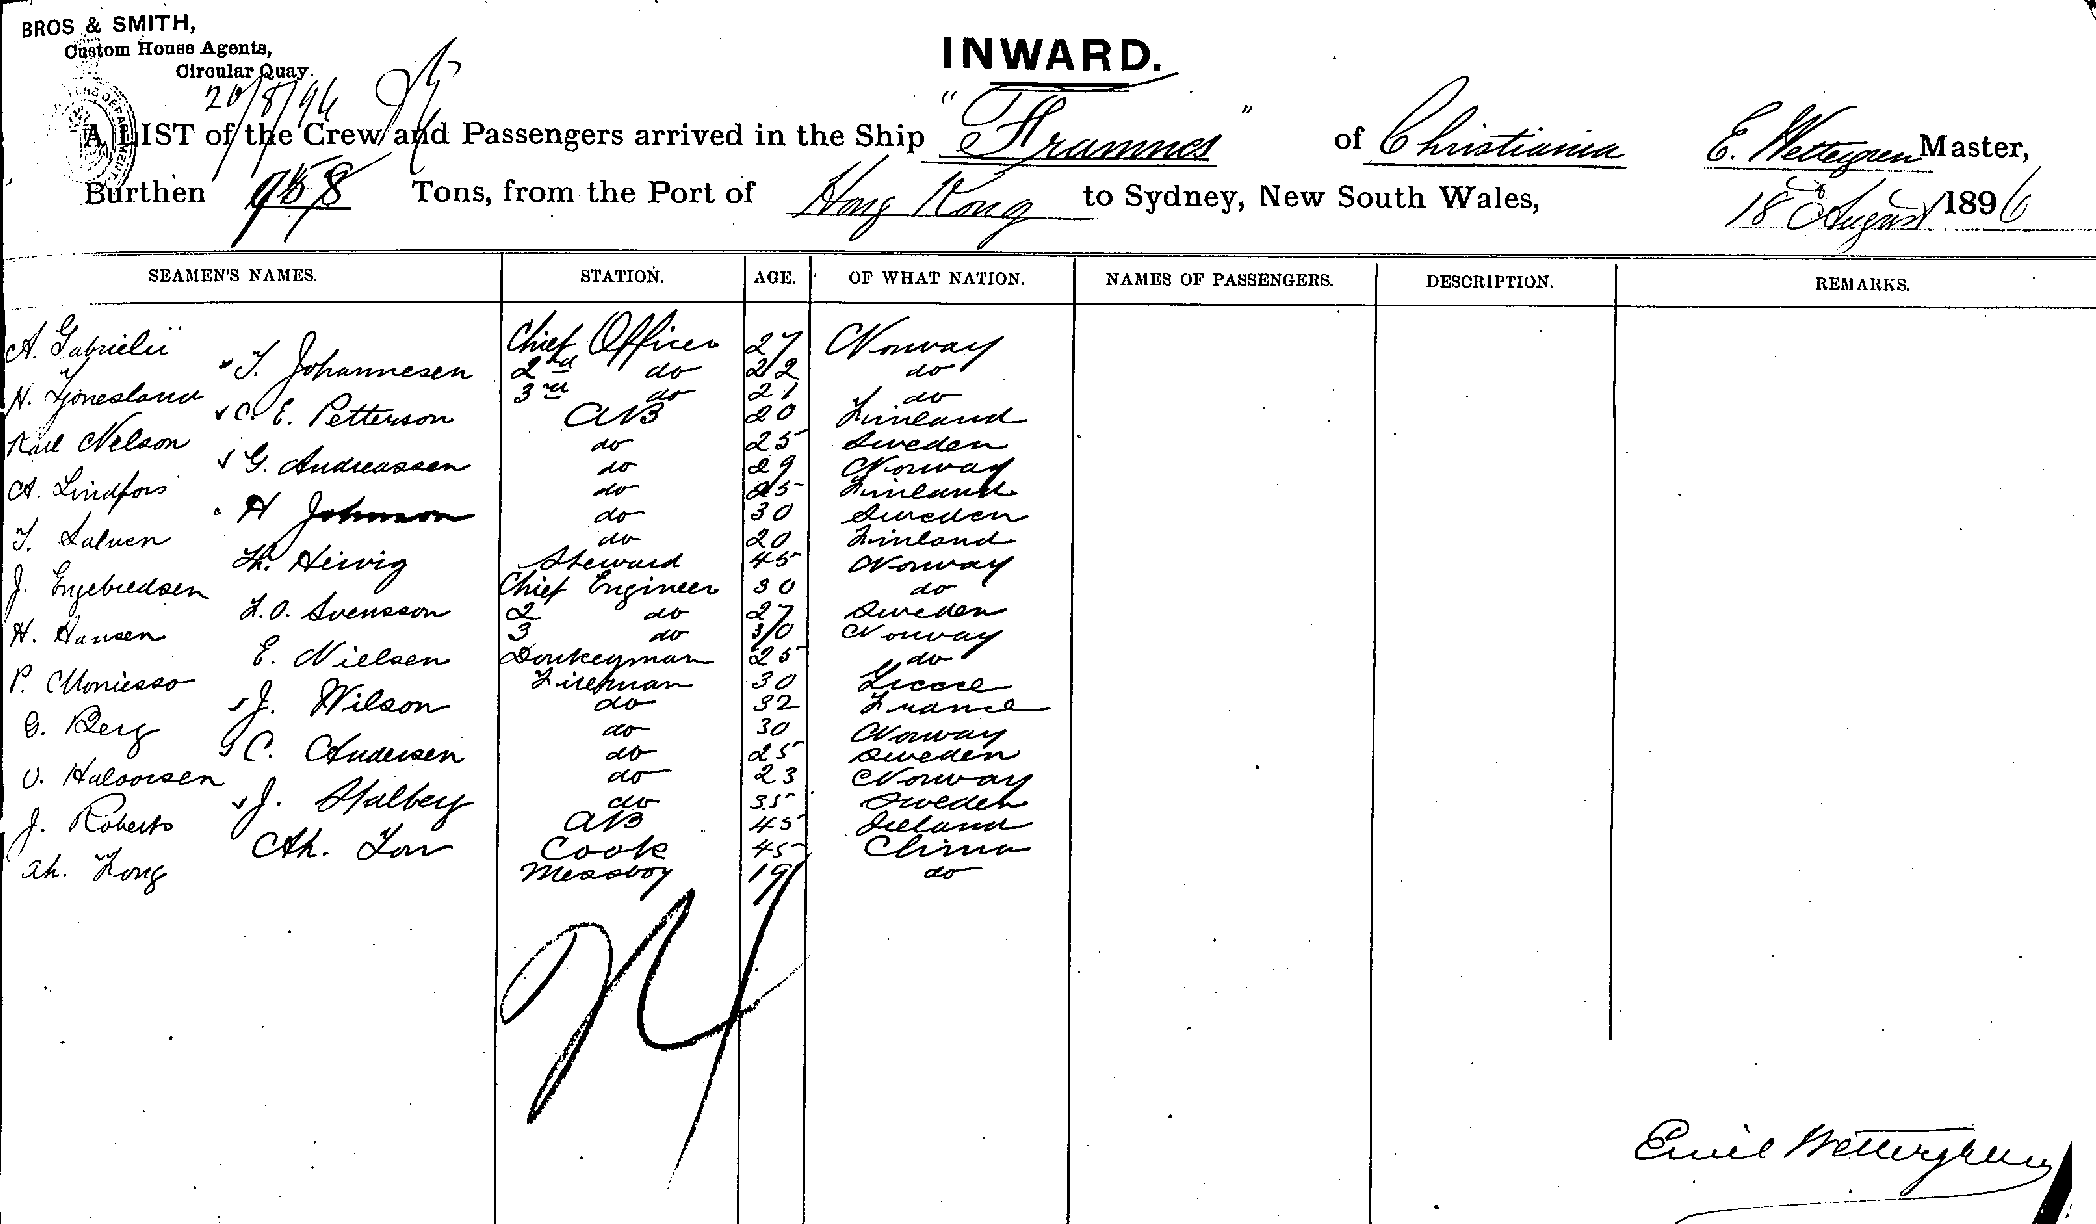 BROS & SMITH,
Custom House Agents,
Circular Quay.
20/8/96
INWARD.
A LIST of the Crew and Passengers arrived in the Ship "Framnes" of Christiania E. Wettergren Master,
Burthen 958 Tons, from the Port of Hong Kong to Sydney, New South Wales, 18 August 1896
SEAMEN'S NAMES. STATION. AGE. OF WHAT NATION. NAMES OF PASSENGERS. DESCRIPTION. REMARKS.
A. Gabrielii Chief Officer 27 Norway
T. Johannesen 2nd do 22 do
N. Tjonesland 3rd do 21 do
C. E. Petterson AB 20 Finland
Karl Nelson do 25 Sweden
G. Andreassen do 29 Norway
A. Lindfors do 25 Finland
H Johnson do 30 Sweden
T. Salven do 20 Finland
Th. Heivig Steward 45 Norway
J. Engebredsen Chief Engineer 30 do
F. O. Svensson 2 do 27 Sweden
H. Hansen 3 do 30 Norway
E. Nielsen Donkeyman 25 do
P. Moniesso Fireman 30 Greece
J. Wilson do 32 France
G. Berg do 30 Norway
C. Andersen do 25 Sweden
O. Halvorsen do 23 Norway
J. Stalberg do 35 Sweden
J. Roberts AB 45 Ireland
Ah. Low Cook 45 China
Ah. Fong Messboy 19 do
Emil Wettergren